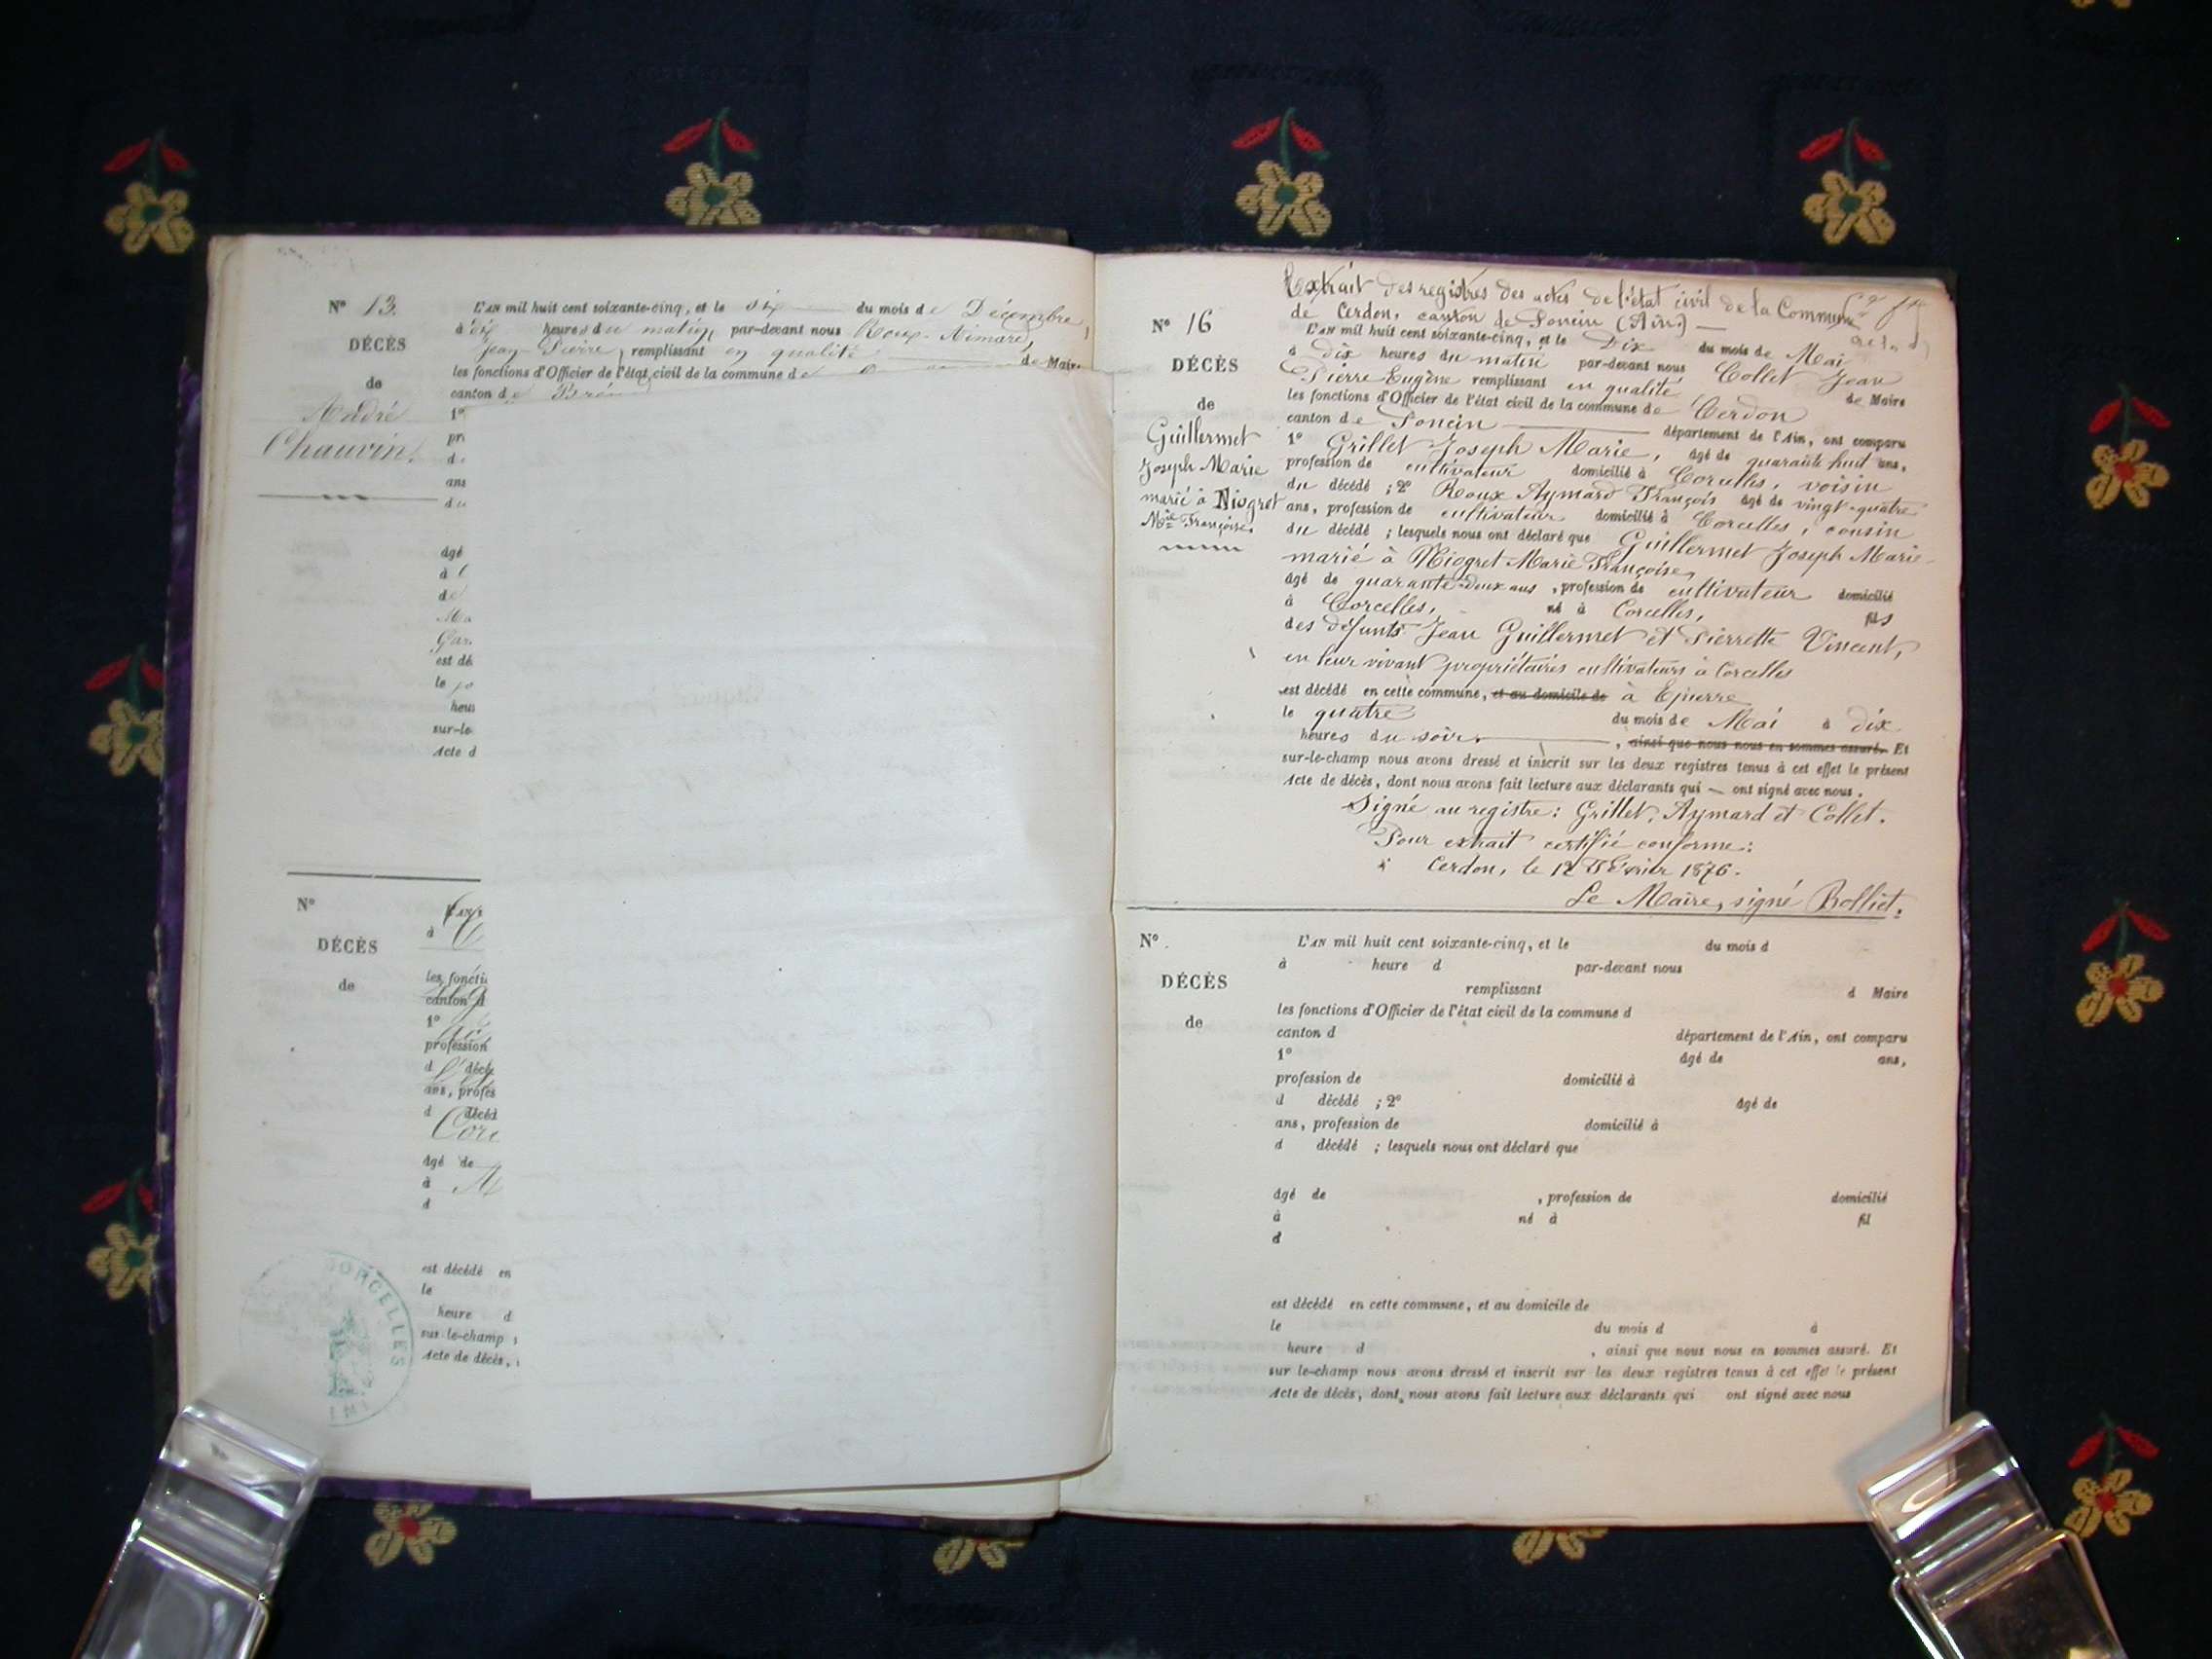 N° 13.
DÉCÈS
de
André
Chauvin.
L'AN mil huit cent soixante-cinq, et le dix du mois de Décembre,
à dix heures du matin, par-devant nous Roux-Aimard,
Jean-Pierre, remplissant en qualité de Maire
les fonctions d'Officier de l'état civil de la commune de
canton de
1°
pr
d
ans
du
âgé
à C
de
Ma
Gar
est dé
le
heu
sur-le
Acte d
N°
DÉCÈS
de
L'AN
à
les foncti
canton d
1°
profession
d décé
ans, profes
d décéd
Corc
âgé de
à M
d
est décédé en
le
heure d
sur-le-champ
Acte de décès,
CORCELLES
Extrait des registres des actes de l'état civil de la Commune
de Cerdon, canton de Poncin (Ain)
N° 16
DÉCÈS
de
Guillermet
Joseph Marie
marié à Niogret
Mie Françoise.
L'AN mil huit cent soixante-cinq, et le Dix du mois de Mai
à dix heures du matin par-devant nous Collet Jean
Pierre Eugène remplissant en qualité de Maire
les fonctions d'Officier de l'état civil de la commune de Cerdon
canton de Poncin département de l'Ain, ont comparu
1° Grillet Joseph Marie, âgé de quarante huit ans,
profession de cultivateur domicilié à Corcelles, voisin
du décédé ; 2° Roux Aymard François âgé de vingt-quatre
ans, profession de cultivateur domicilié à Corcelles, cousin
du décédé ; lesquels nous ont déclaré que Guillermet Joseph Marie
marié à Niogret Marie Françoise,
âgé de quarante-deux ans, profession de cultivateur domicilié
à Corcelles, né à Corcelles, fils
des défunts Jean Guillermet et Pierrette Vincent,
en leur vivant propriétaires cultivateurs à Corcelles
est décédé en cette commune, et au domicile de à Epierre
le quatre du mois de Mai à dix
heures du soir. , ainsi que nous nous en sommes assuré. Et
sur-le-champ nous avons dressé et inscrit sur les deux registres tenus à cet effet le présent
Acte de décès, dont nous avons fait lecture aux déclarants qui — ont signé avec nous.
Signé au registre : Grillet, Aymard et Collet.
Pour extrait certifié conforme :
Cerdon, le 12 Février 1876.
Le Maire, signé Bolliet.
N°.
DÉCÈS
de
L'AN mil huit cent soixante-cinq, et le du mois d
à heure d par-devant nous
remplissant d Maire
les fonctions d'Officier de l'état civil de la commune d
canton d département de l'Ain, ont comparu
1° âgé de ans,
profession de domicilié à
d décédé ; 2° âgé de
ans, profession de domicilié à
d décédé ; lesquels nous ont déclaré que
âgé de , profession de domicilié
à né à fil
d
est décédé en cette commune, et au domicile de
le du mois d à
heure d , ainsi que nous nous en sommes assuré. Et
sur le-champ nous avons dressé et inscrit sur les deux registres tenus à cet effet le présent
Acte de décès, dont nous avons fait lecture aux déclarants qui ont signé avec nous